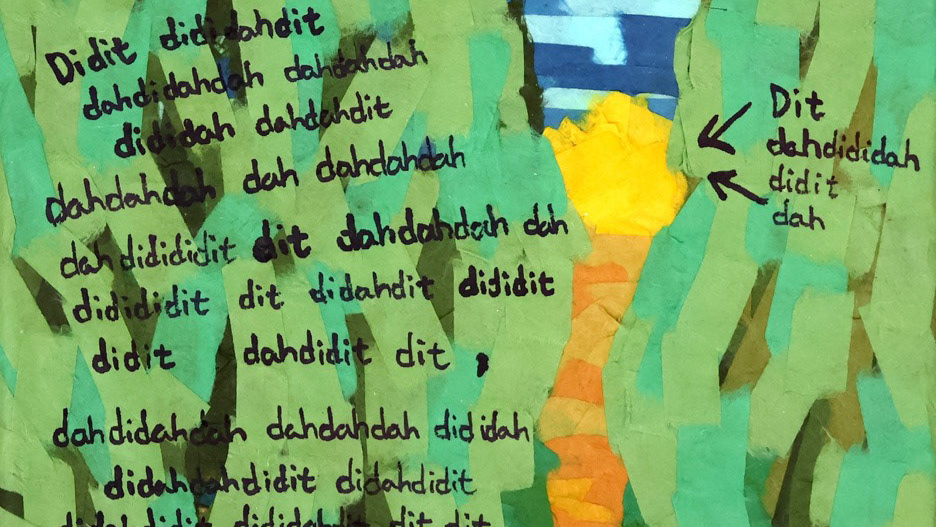 Didit dididahdit
dahdidahdah dahdahdah
dididah dahdahdit
dahdahdah dah dahdahdah
dahdidididit dit dahdahdah dah
didididit dit didahdit dididit
didit dahdidit dit ,
dahdidahdah dahdahdah dididah
didahdahdidit didahdidit
dit dit
Dit
dahdididah
didit
dah